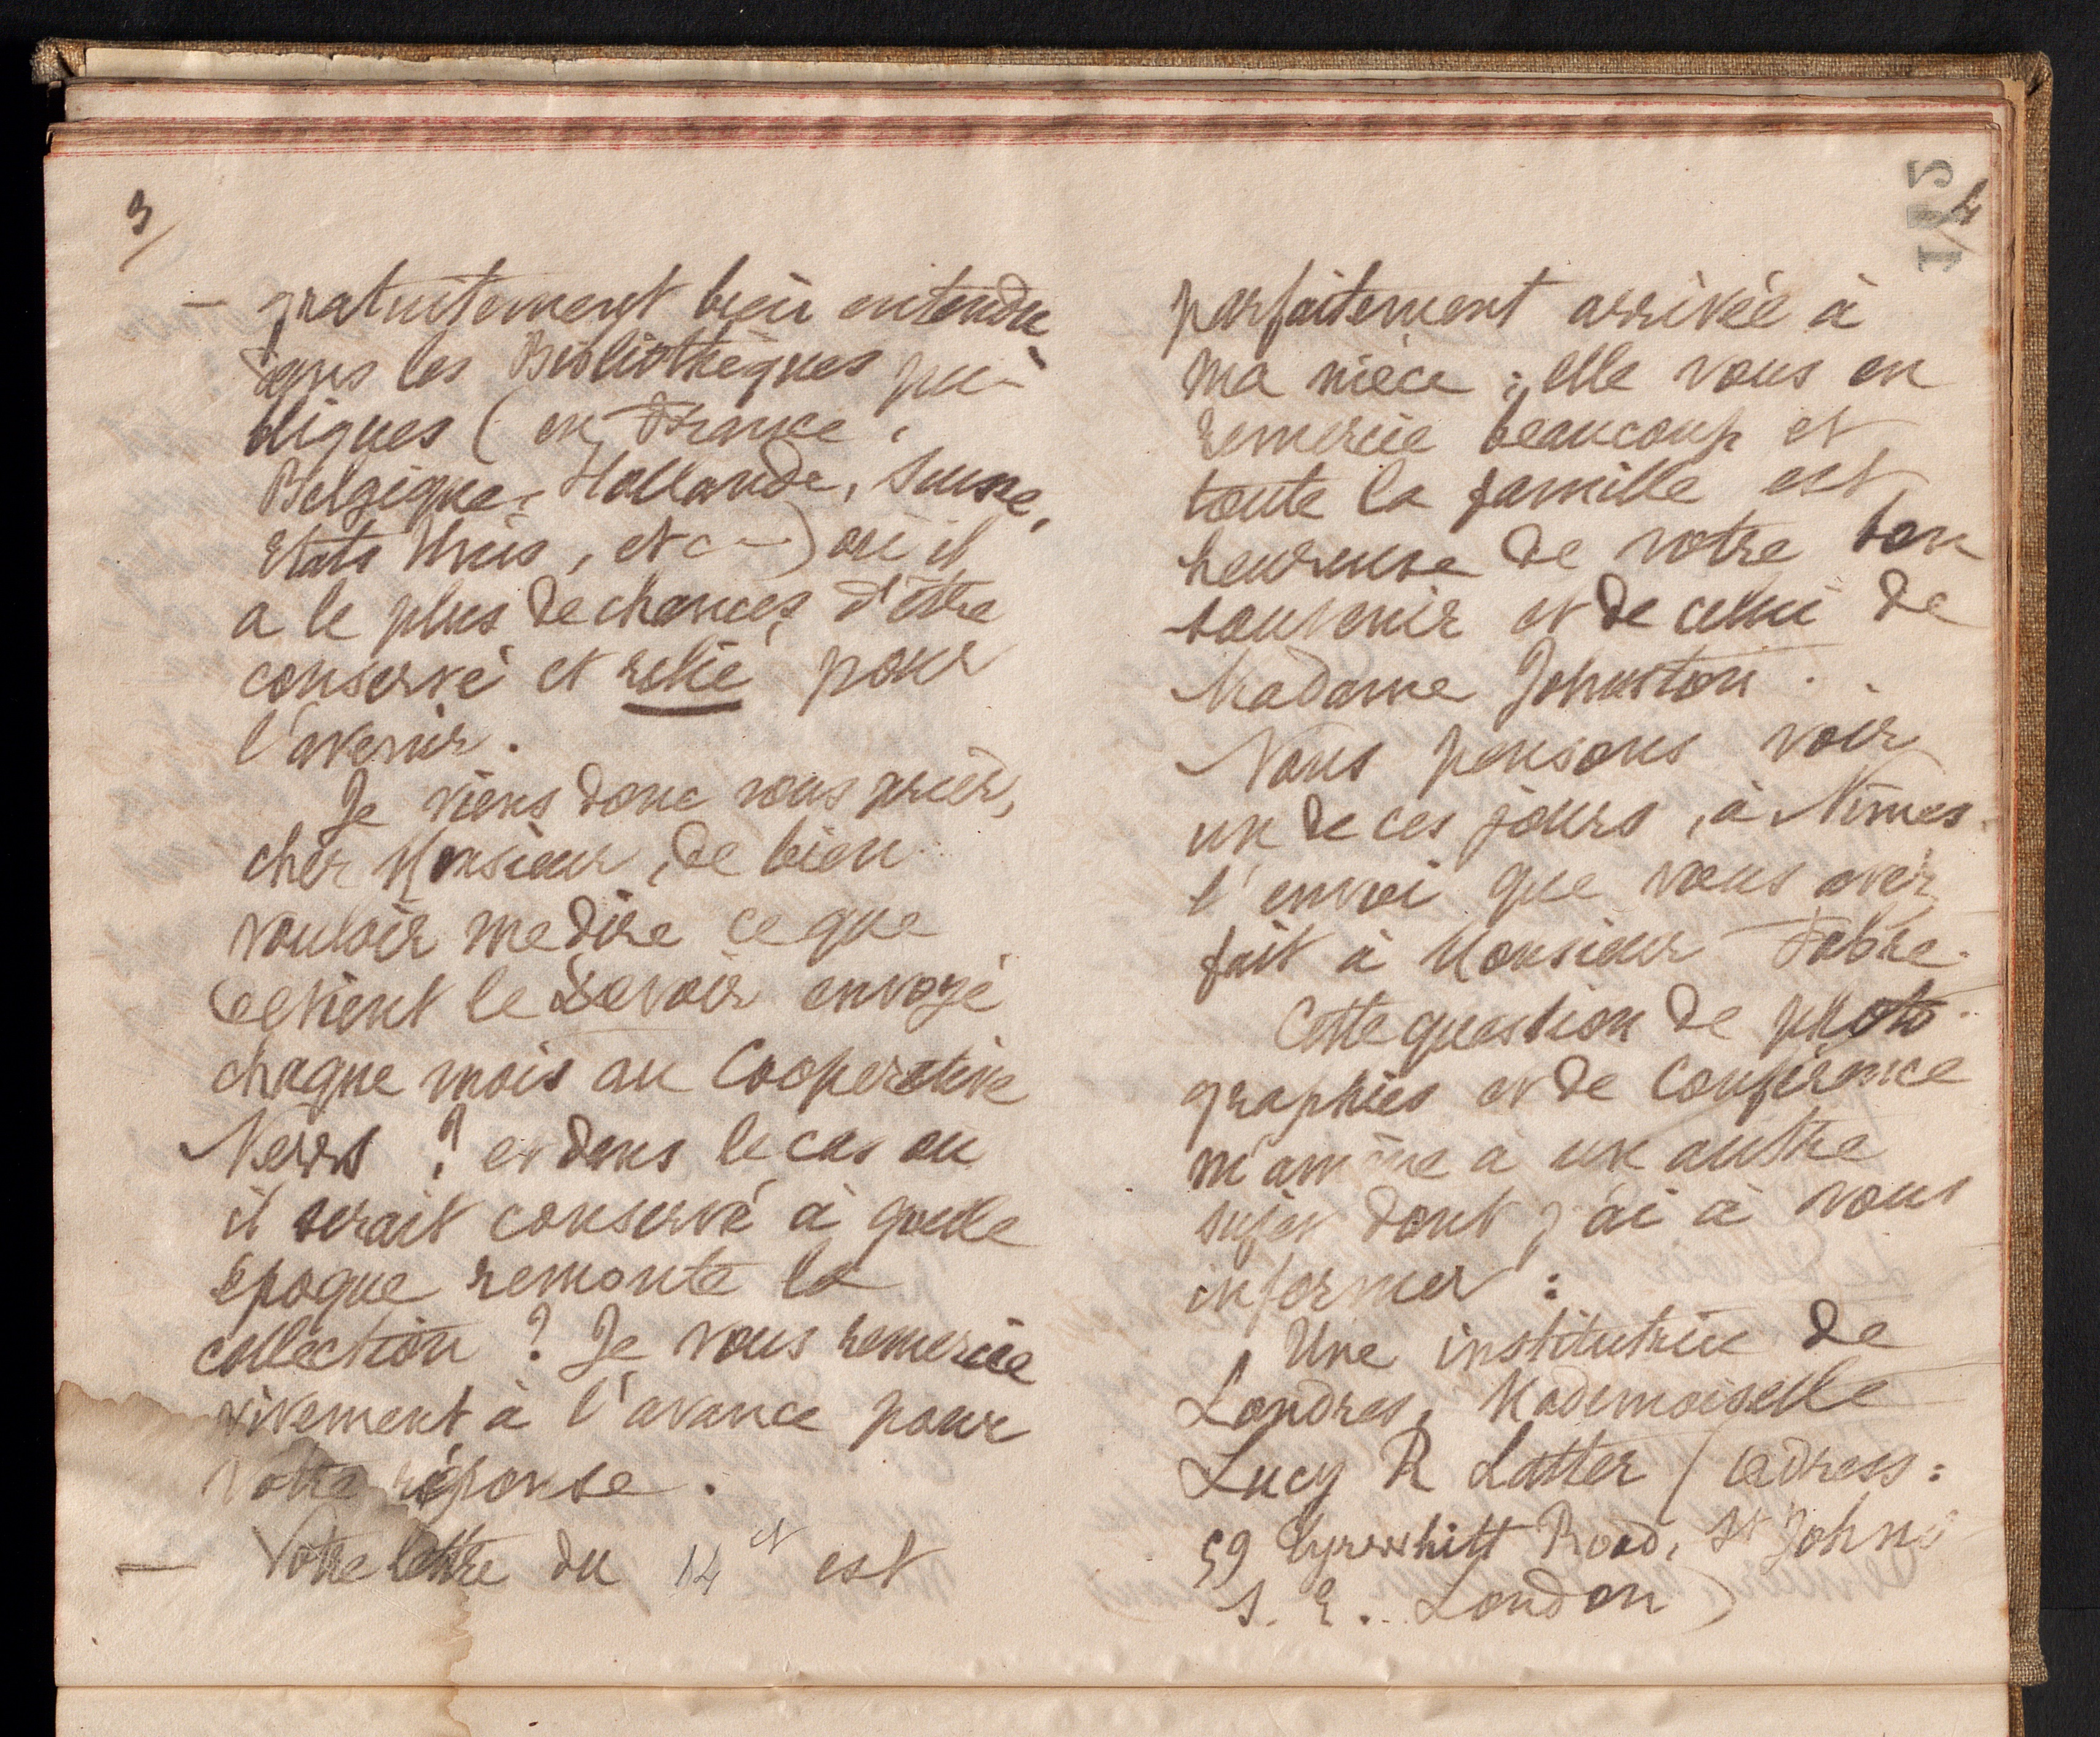 3/
— gratuitement bien entendu
dans les Bibliothèques pu-
bliques (en France,
Belgique, Hollande, Suisse,
Etats Unis, etc—) où il
a le plus de chances d'être
conservé et relié pour
l'avenir.
Je viens donc vous prier,
cher Monsieur, de bien
vouloir me dire ce que
devient le Devoir envoyé
chaque mois au Cooperative
News ? et dans le cas où
il serait conservé à quelle
époque remonte la
collection ? Je vous remercie
vivement à l'avance pour
votre réponse.
— Votre lettre du 14 ct est
4
parfaitement arrivée à
ma nièce ; elle vous en
remercie beaucoup et
toute la famille est
heureuse de votre bon
souvenir et de celui de
Madame Johnston.
Nous pensons voir
un de ces jours, à Nîmes
l'envoi que vous avez
fait à Monsieur Fabre.
Cette question de photo-
graphies et de Conférence
m'amène à un autre
sujet dont j'ai à vous
informer :
Une institutrice de
Londres, Mademoiselle
Lucy R Latter (adress:
59 Tyrwhitt Road, St Johns
S. E. London)